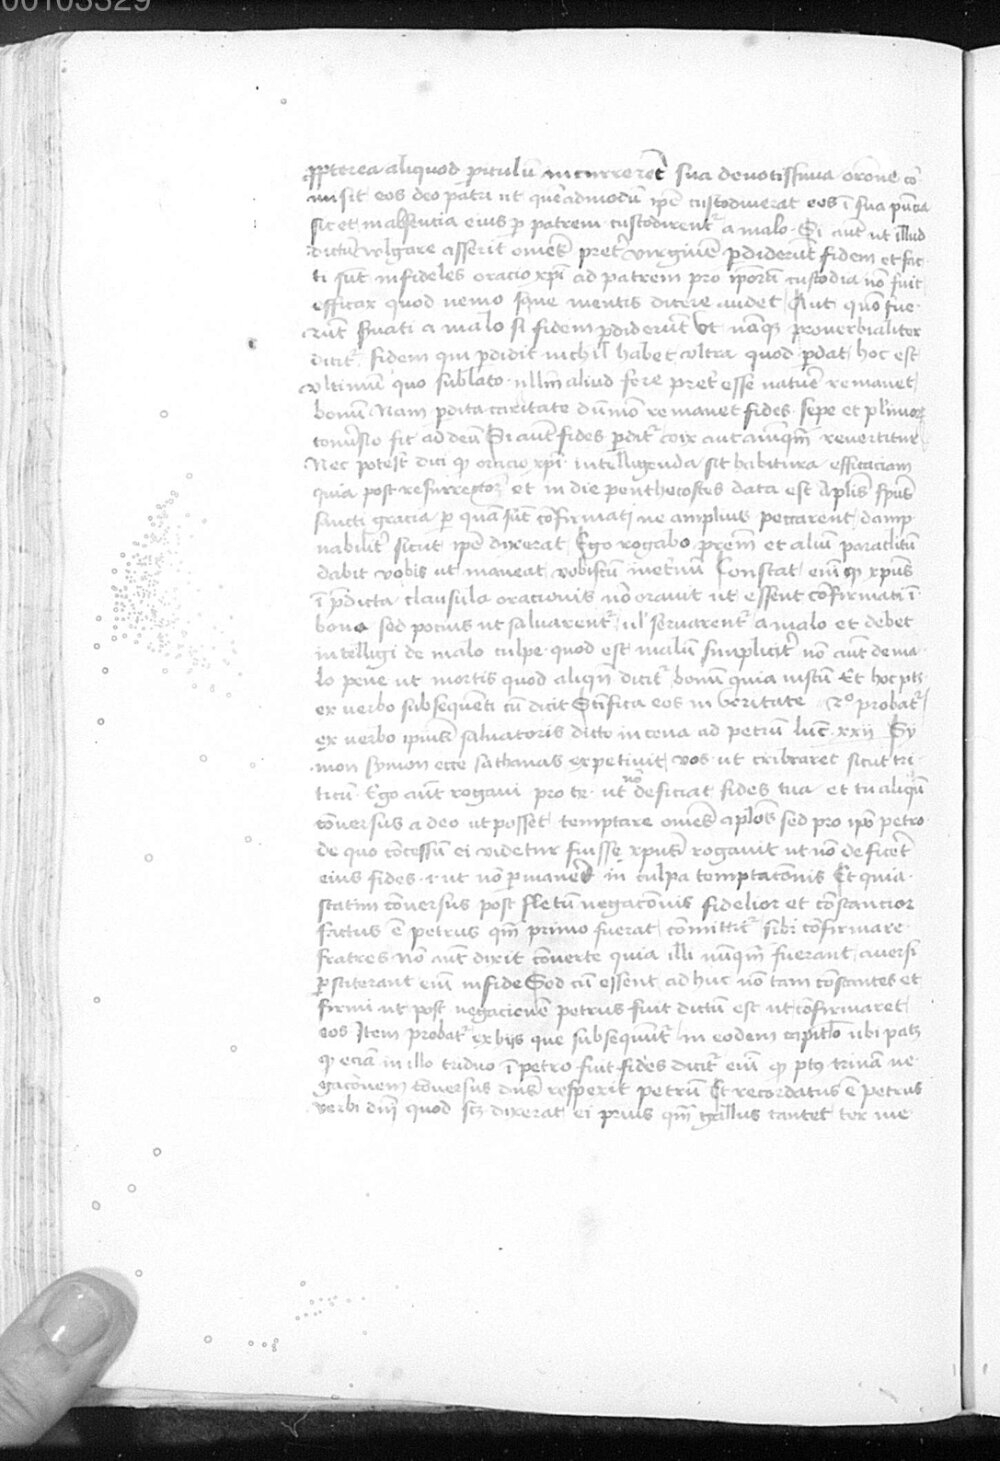 00103329
ppterea aliquod pitulū incurreret sua deuotissima orōne cō
misit eos deo patri ut quēadmodū ipē custodiuerat eos ī sua pūcia
sic et in absencia eius p̄ patrem custodirent᷑ a malo · Si aūt ut illud
dictū volgare asserit om̄es pret᷑ virginē p̄diderūt fidem et fac
ti sūt infideles oracio xp̄i ad patrem pro ip̄orū custodia nō fuit
efficax quod nemo sane mentis dicere audet / Aut quō fue
rūt s̄uati a malo si fidem p̄diderūt Vt nāqꝫ prouerbialiter
dicit᷑ fidem qui p̄didit nichil habet vltra quod p̄dat / hoc est
vltimū quo sublato nullū aliud fore pret᷑ esse nature remanet
bonū Nam p̄dita caritate dūmō remanet fides · sepe et pl'imoꝝ
conūsio fit ad deū Si aūt fides p̄dit᷑ vix aut nūqm̄ reuertitur
Nec potest dici ꝙ oracio xp̄i intelligenda sit habitura efficaciam
quia post resurrectōꝫ et in die penthecostes data est Ap̄lis sp̄us
sancti gracia p̄ quā sūt cōfirmati ne amplius peccarent damp
nabilit᷑ sicut ipē dixerat Ego rogabo p̄rem et aliū paraclitū
dabit vobis ut maneat vobiscū inet'nū Constat eni ꝙ xp̄us
ī p̄dicta clausula oracionis nō orauit ut essent cōfirmati ī
bono sed pocius ut saluarent᷑ ul' seruarent᷑ a malo et debet
intelligi de malo culpe quod est malū simplicit᷑ nō aūt de ma
lo pene ut mortis quod aliqn̄ dicit᷑ bonū quia iustū Et hoc ptꝫ
ex uerbo subsequenti cū dicit Sc̄ifica eos in veritate 2º probat᷑
ex uerbo ipius saluatoris dicto in cena ad petrū luc̄ xxij Sy
mon symon ecce sathanas expetiuit vos ut cribraret sicut tri
ticū · Ego aūt rogaui pro te · ut nō deficiat fides tua et tu aliqn̄
cōuersus a deo ut posset temptare om̄es ap̄los sed pro ip̄o petro
de quo cōcessū ei videtur fuisse xp̄us rogauit ut nō deficeret
eius fides · i· ut nō p̄maneret in culpa temptacōnis Et quia
statim cōuersus post fletū negacōnis fidelior et cōstancior
factus ē petrus qm̄ primo fuerat cōmittit᷑ s̄ibi cōfirmare
fratres nō aūt dixit cōuerte quia illi nūqm̄ fuerant auersi
p̄stiterant eni in fide Sed cū essent adhuc nō tam cōstantes et
firmi ut post negacionē petrus fuit dictū est ut cōfirmaret
eos Item probat᷑ ex hijs que subsequūt᷑ in eodem capitlo ubi patꝫ
ꝙ eciā in illo triduo ī petro fuit fides dicit᷑ eni ꝙ pꝰ trinā ne
gacōnem cōuersus dūs respexit petrū Et recordatus ē petrus
verbi dn̄i quod scꝫ dixerat ei prius qm̄ gallus cantet ter me